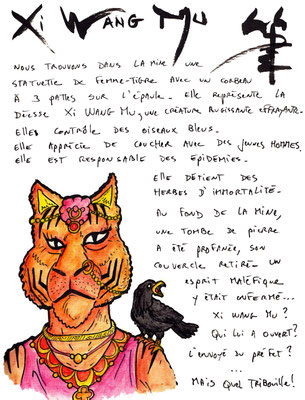 Xi Wang Mu
nous trouvons dans la mine une
statuette de femme-tigre avec un corbeau
à 3 pattes sur l'épaule. Elle représente la
déesse Xi Wang Mu, une créature rugissante effrayante.
Elle contrôle des oiseaux bleus.
elle apprécie de coucher avec des jeunes hommes.
elle est responsable des épidémies.
elle détient des
herbes d'immortalité.
au fond de la mine,
une tombe de pierre
a été profanée, son
couvercle retiré. un
esprit maléfique
y était enfermé...
Xi Wang Mu ?
Qui lui a ouvert ?
l'envoyé du préfet ?
...
Mais quel tribouille !